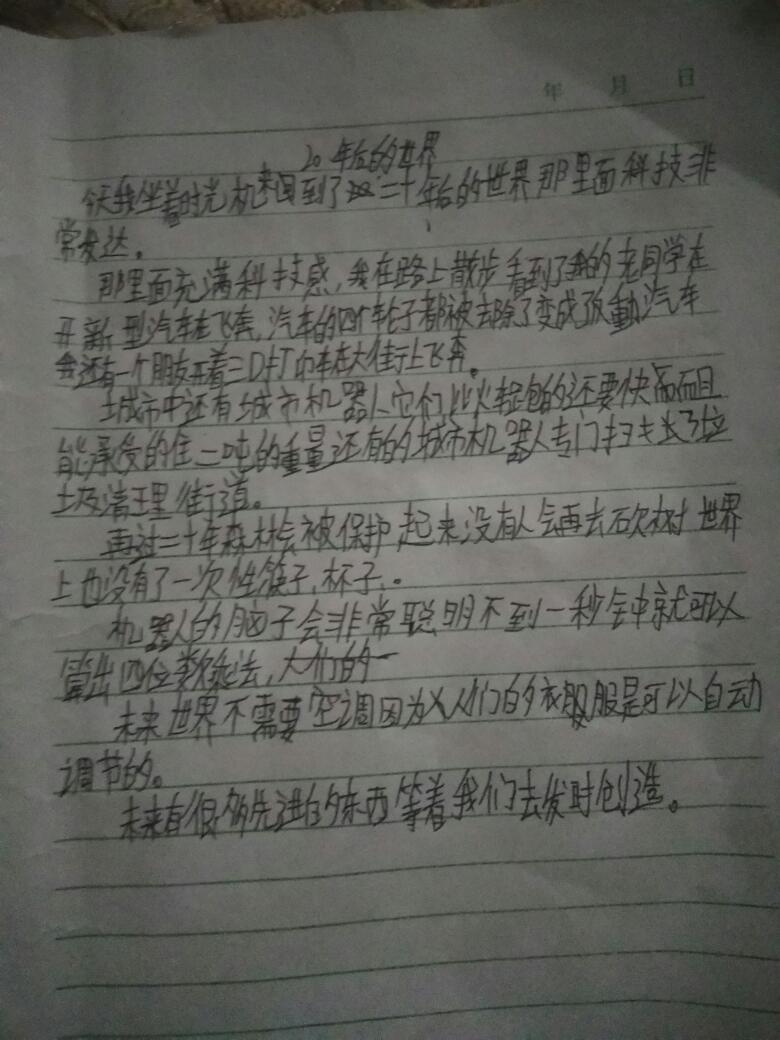 年 月 日
20年后的世界
今天我坐着时光机来回到了二十年后的世界那里面科技非
常发达。
那里面充满科技感,我在路上散步看到了我的老同学在
开新型汽车在飞奔,汽车的四个轮子都被去除了变成了 動汽车
还有一个朋友开着三D打印车在大街上飞奔。
城市中还有城市机器人它们比火 跑的还要快而且
能承受的住二吨的重量还有的城市机器人专门打扫 垃
圾清理街道。
再过二十年森林会被保护起来没有人会再去砍树世界
上也没有了一次性筷子,杯子。
机器人的脑子会非常聪明不到一秒钟就可以
算出四位数乘法,人们的一
未来世界不需要空调因为人们的衣服是可以自动
调节的。
未来有很多先进的东西等着我们去发 创造。